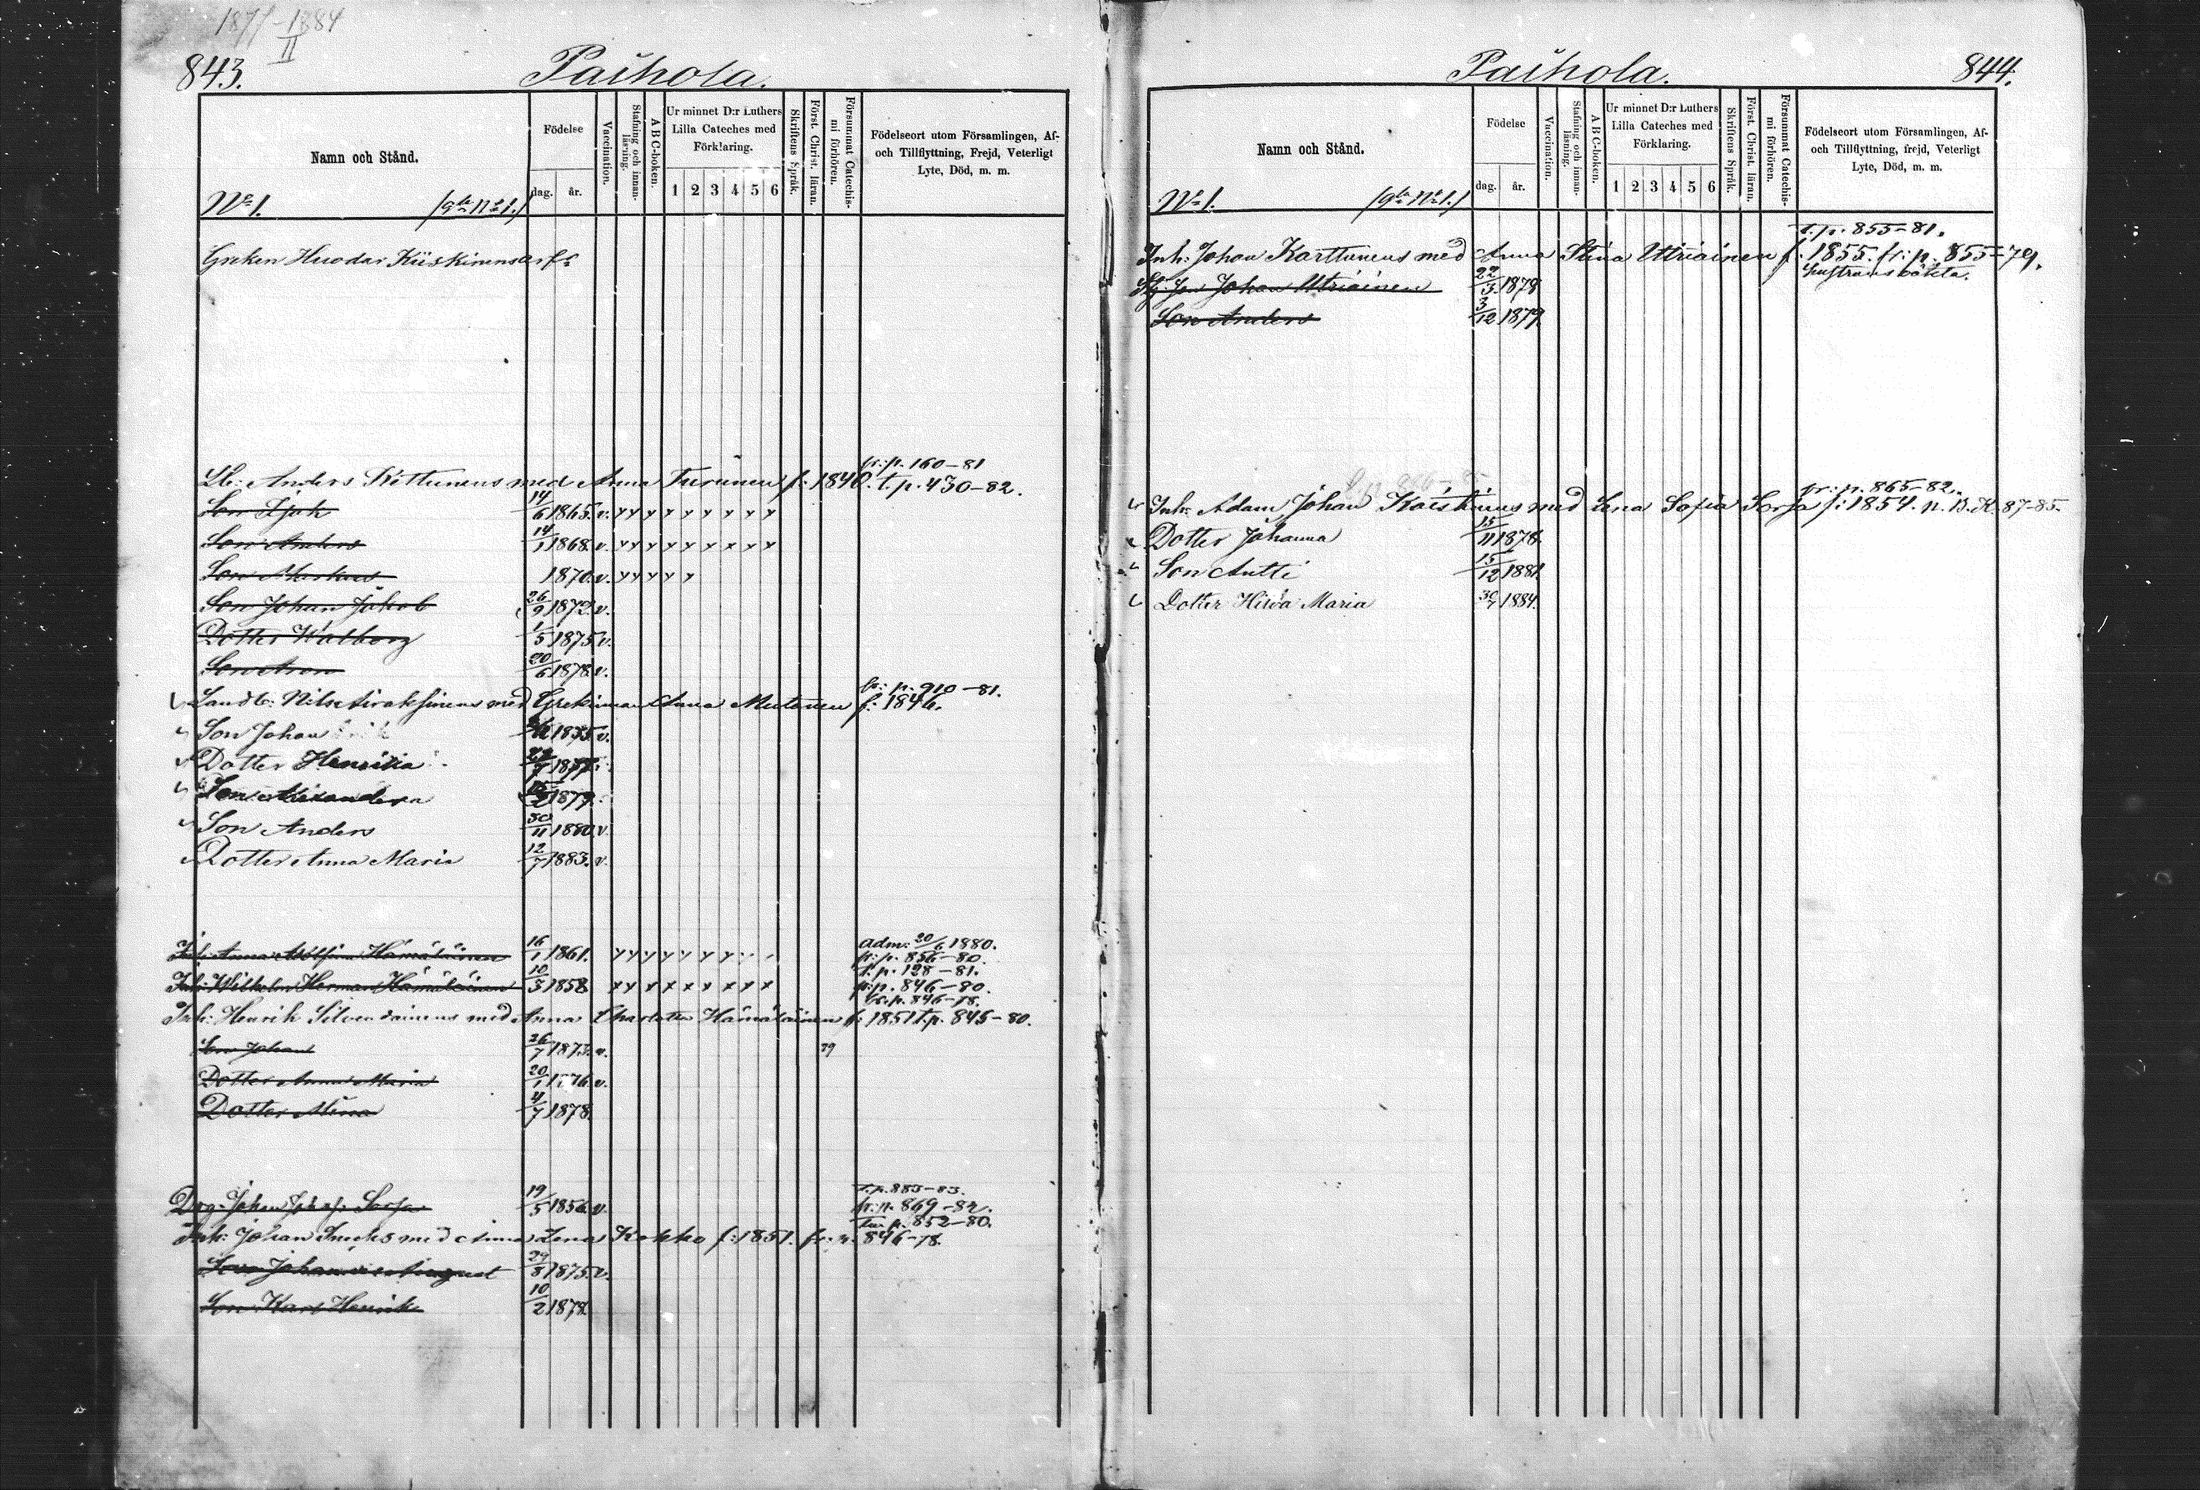 1877-1884
II
843.
Paihola.
Namn och Stånd.
Födelse
dag.
år.
Vaccination.
Stafning och innanläsning.
A B C-boken.
Ur minnet D:r Luthers Lilla Cateches med Förklaring.
1 2 3 4 5 6
Skriftens Språk.
Först. Christ. läran.
Försummat Catechismi förhören.
Födelseort utom Församlingen, Af-
och Tillflyttning, Frejd, Veterligt
Lyte, Död, m. m.
No 1.
Greken Huodar Kiiskinens arf:
fr: p. 160-81
Anders Kettunens med Anna Turunen f: 1840. t. p. 430-82.
14/6 1865. v. x x x x x x x x x
Son Anders 14/1 1868. v. x x x x x x x x x
Son Markus 1870. v. x x x x x
Son Johan Jakob 26/9 1872. v.
Dotter Walborg 1/5 1875. v.
Son Aron 20/6 1878. v.
fr: p. 910-81.
Nils med Grekinnan Anna Mutanen f: 1846.
Son Johan 1875. v.
Dotter Henrika 1877.
1879.
Son Anders 30/11 1880. v.
Dotter Anna Maria 12/7 1883. v.
adm: 20/6 1880.
Inh: Anna Hämäläinen 16/1 1861. fr: p. 856-80.
t. p. 128-81.
Inh: Wilhelm Herman Hämäläinen 10/3 1858 x x x x x x x x x fr: p. 846-80.
fr. p. 846-78.
Inh: Henrik Silvendainens med Anna Charlotta Hämäläinen f: 1851 t. p. 845-80.
Son Johan 26/7 1873. v. 79
Dotter Anna Maria 20/1 1876 v.
Dotter Mina 4/7 1878.
t. p. 883-83.
Drg: Johan Sorsa 19/5 1856. v. fr: p. 869-82.
p. 852-80.
Inh: Johan med Anna Lena Kokko f: 1851. fr: p. 846-78.
Son Johannes August 29/8 1875. v.
Son Karl Henrik 10/2 1878.
Paihola.
844.
Namn och Stånd.
Födelse
dag.
år.
Vaccination.
Stafning och innanläsning.
A B C-boken.
Ur minnet D:r Luthers Lilla Cateches med Förklaring.
1 2 3 4 5 6
Skriftens Språk.
Först. Christ. läran.
Försummat Catechismi förhören.
Födelseort utom Församlingen, Af-
och Tillflyttning, frejd, Veterligt
Lyte, Död, m. m.
No 1.
t. p. 855-81.
Inh: Johan Karttunens med Anna Stina Utriainen f. 1855. fr: p. 855-79.
Johan Utriainen 22/3 1878
Son Anders 3/12 1879.
fr: p. 865-82.
Inh: Adam Johan Koistinens med Lena Sofia Sorsa f: 1854. n. B. K. 87-85.
Dotter Johanna 15/11 1878.
Son Antti 15/12 1881.
Dotter Hilda Maria 30/7 1884.